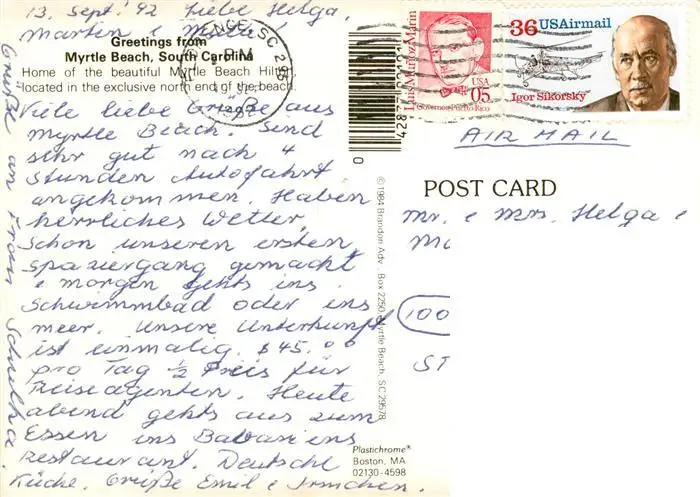 13. Sept. 92 Liebe Helga,
Martin &
Greetings from
Myrtle Beach, South Carolina
Home of the beautiful Myrtle Beach Hilton
located in the exclusive north end of the beach.
Viele liebe Grüße aus
Myrtle Beach. Sind
sehr gut nach 4
Stunden Autofahrt
angekommen. Haben
herrliches Wetter.
Schon unseren ersten
Spaziergang gemacht
& morgen gehts ins
Schwimmbad oder ins
Meer. Unsere Unterkunft
ist einmalig. $45.00
pro Tag ½ Preis für
Reiseagenten. Heute
abend gehts aus zum
Essen ins Bavariens
Restaurant. Deutsche
Küche. Grüße Emil & Irmchen.
Grüße an Frau
FLORENCE, SC
PM
1992
© 1984 Brandon Adv. Box 2250 Myrtle Beach, SC 29578
0
Luis Muñoz Marín
Governor, Puerto Rico
USA
05
36 USAirmail
Igor Sikorsky
AIR MAIL
POST CARD
Mr. & Mrs. Helga &
100
ST
Plastichrome®
Boston, MA
02130-4598